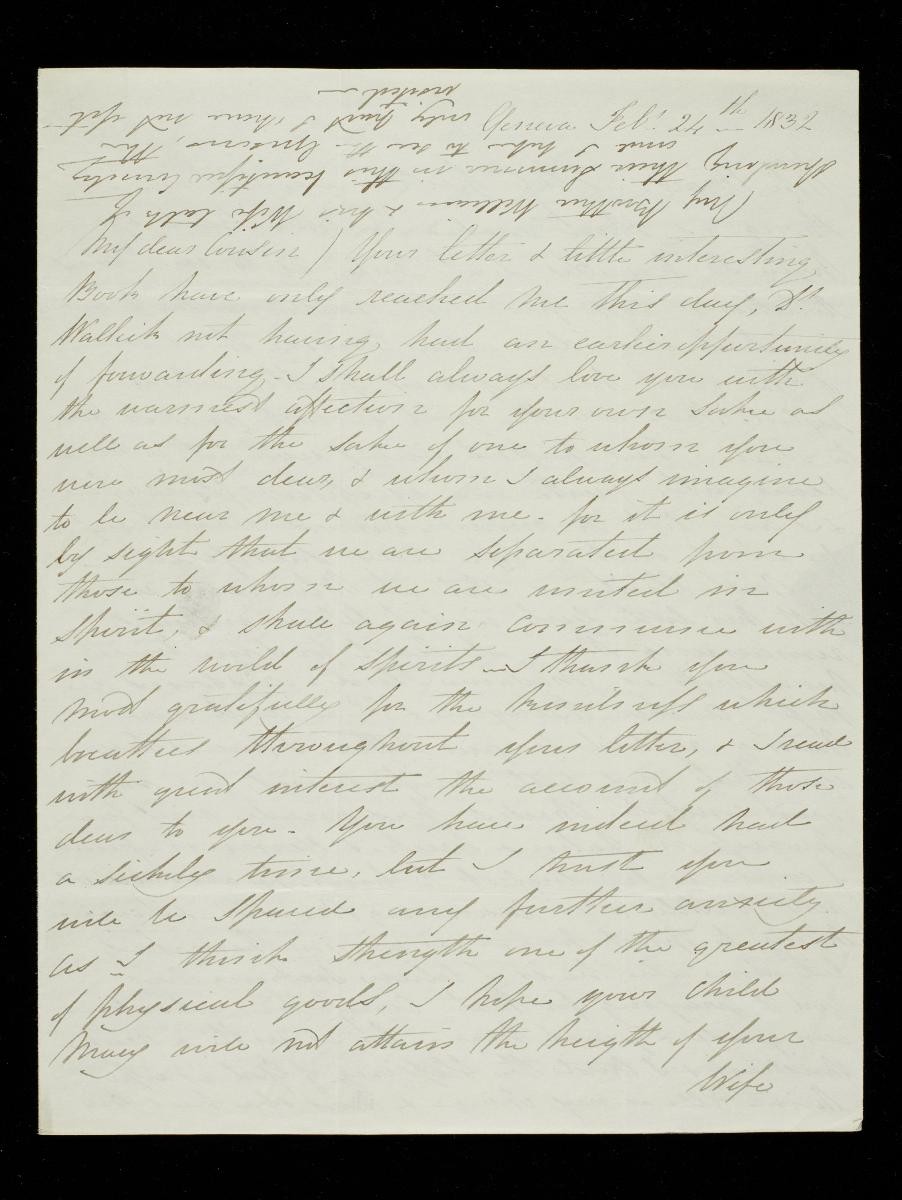 Geneva Feb. 24th 1832
My dear Cousin / Your letter & little interesting
Book have only reached me this day, Dr.
not having had an earlier opportunity
of forwarding - I shall always love you with
the warmest affection for your own sake as
well as for the sake of one to whom you
were most dear, & whom I always imagine
to be near me & with me - for it is only
by sight that we are separated from
those to whom we are united in
Spirit, & shall again commune with
in the world of Spirits - I thank you
most gratefully for the kindness which
breathes throughout your letter, & I read
with great interest the account of those
dear to you - You have indeed had
a sickly time, but I trust you
will be spared any further anxiety
as I think strength one of the greatest
of physical goods, I hope your child
Mary will not attain the heigth of your
Wife
(My Brother William & his Wife talk of
spending their Summer in this beautiful Country
and I hope to see the
only part I have not yet
visited -